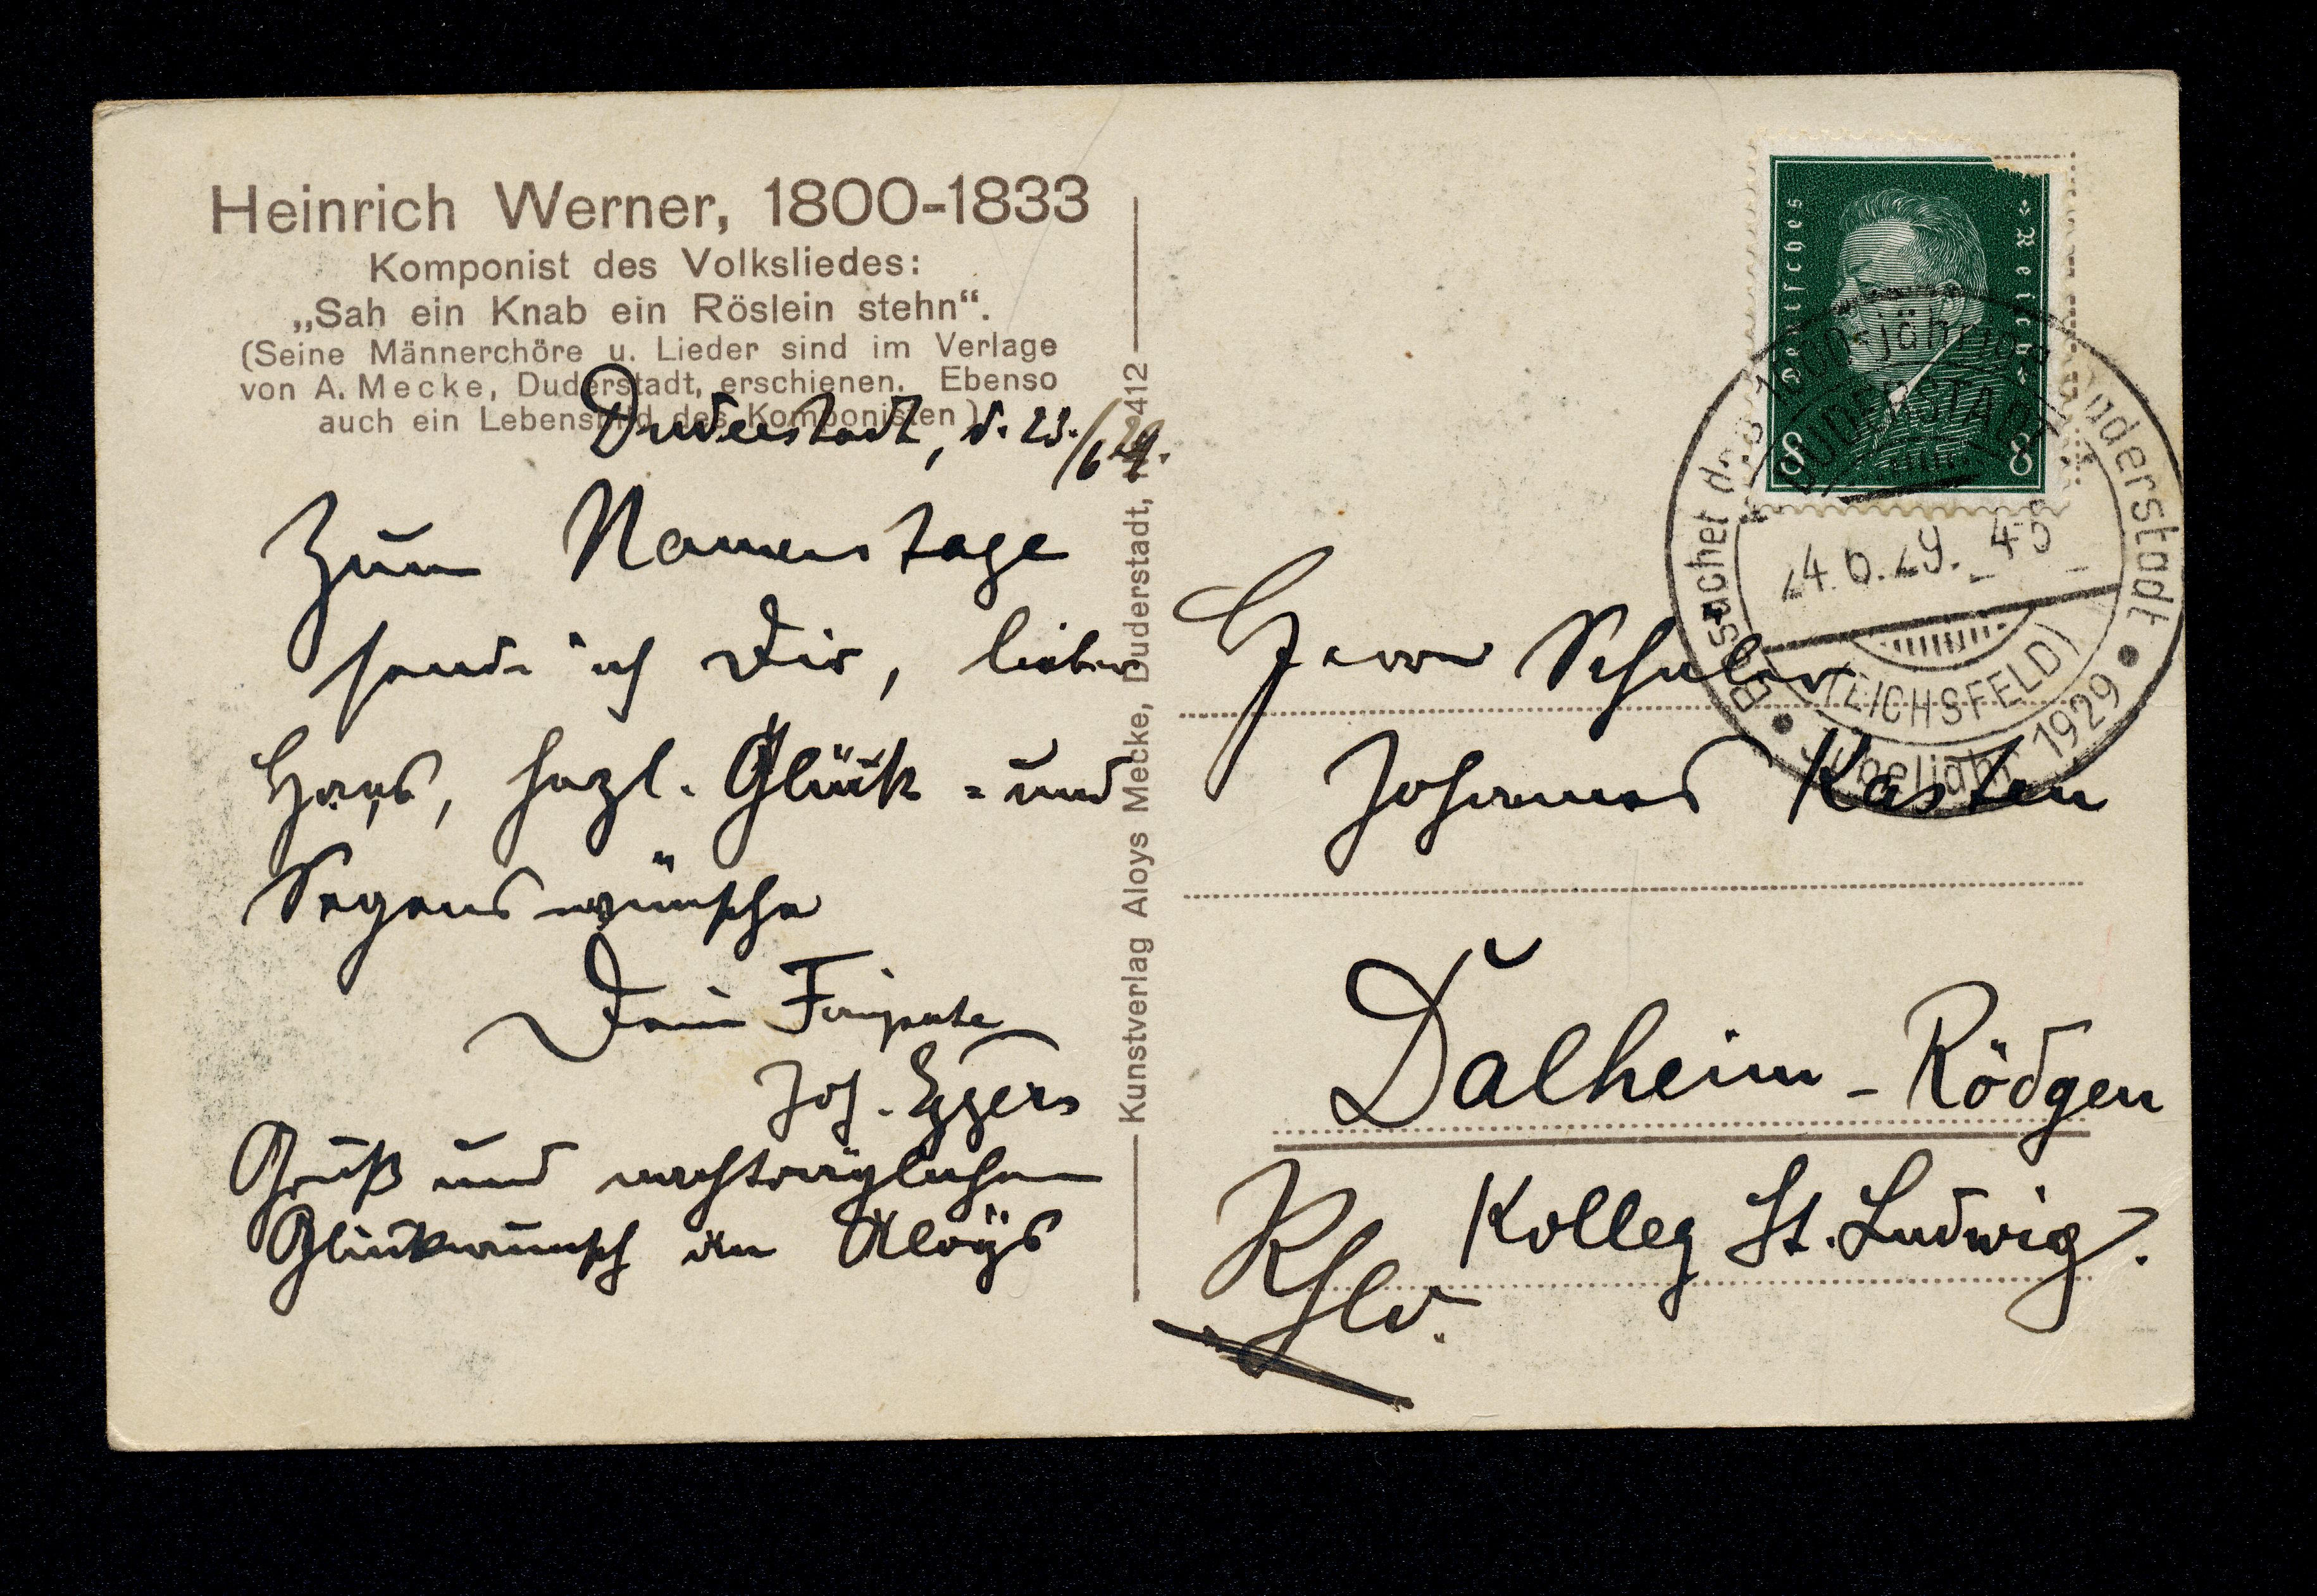 Heinrich Werner, 1800-1833
Komponist des Volksliedes:
„Sah ein Knab ein Röslein stehn“.
(Seine Männerchöre u. Lieder sind im Verlage
von A. Mecke, Duderstadt, erschienen. Ebenso
auch ein Lebensbild des Komponisten)
Duderstadt, d. 23./6 29.
Zum Namenstage
sende ich Dir, lieber
Hans, herzl. Glück- und
Segenswünsche
Dein
Jos. Eggers
Gruß und nachträglichen
Glückwunsch an Aloys
Kunstverlag Aloys Mecke, Duderstadt, 412
Deutsches Reich
8 8
Besuchet das 1000jährige Duderstadt
DUDERSTADT
24.6.29.
(EICHSFELD)
Jubeljahr 1929
Herrn Schüler
Johannes Kasten
Dalheim-Rödgen
Kolleg St. Ludwig.
Rhld.